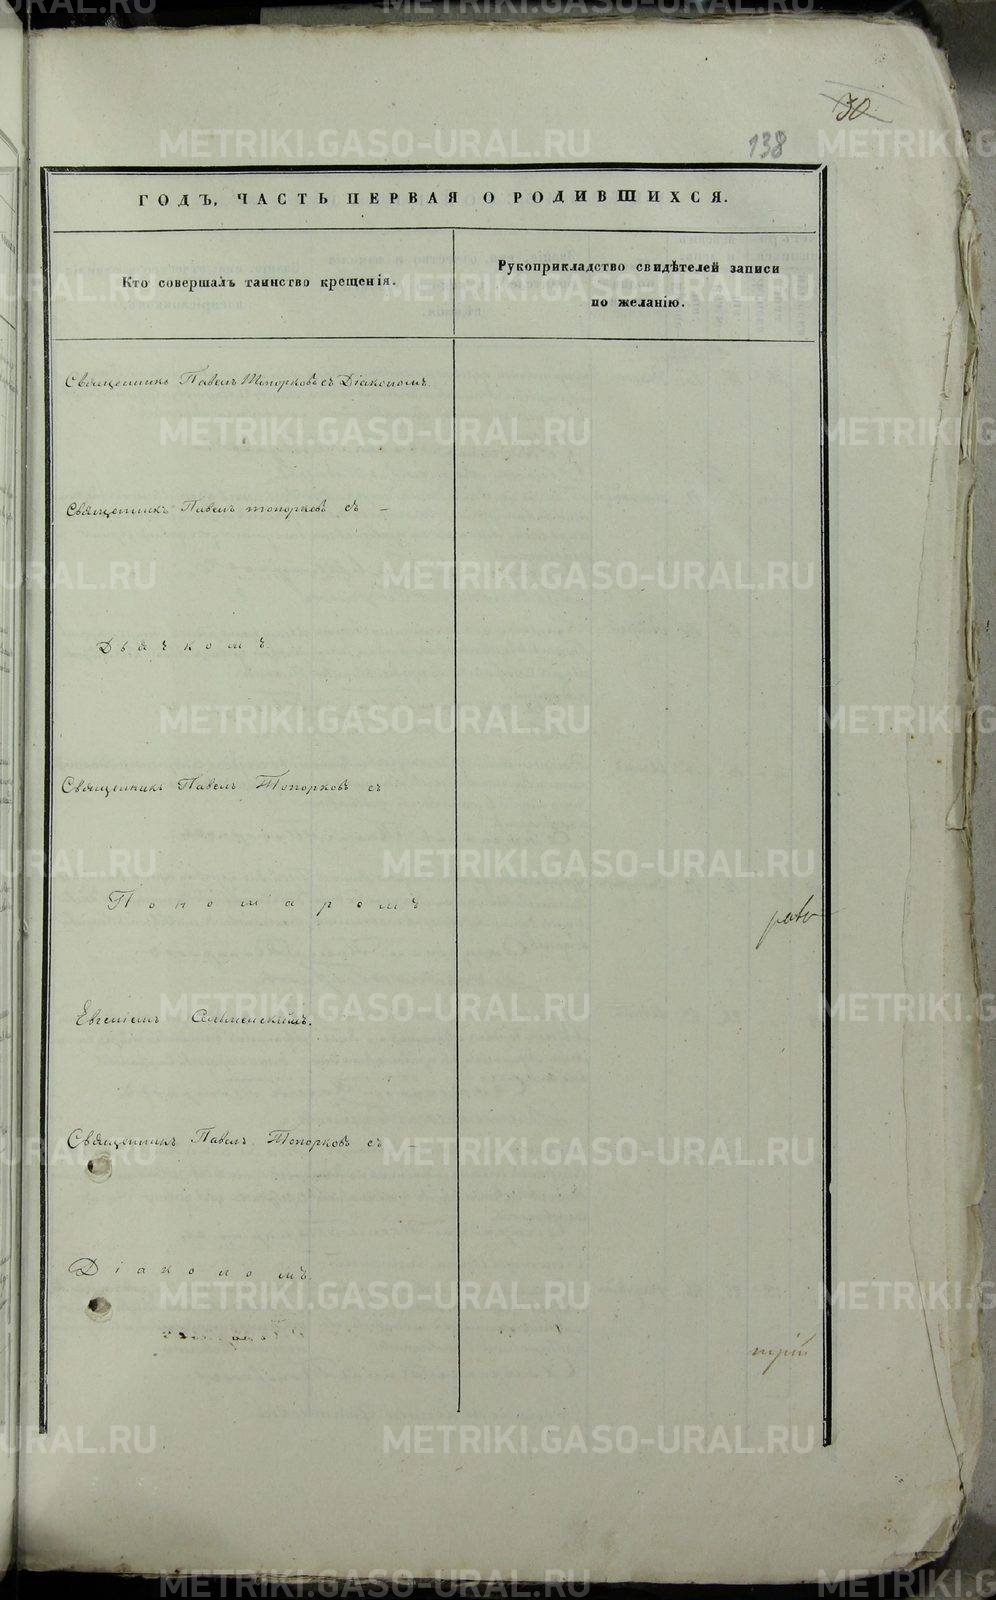 30
138
ГОДЪ, ЧАСТЬ ПЕРВАЯ О РОДИВШИХСЯ.
Кто совершалъ таинство крещенія.
Рукоприкладство свидѣтелей записи
по желанію.
Священникъ Павелъ Топорковъ съ Діакономъ.
Священникъ Павелъ Топорковъ съ –
Дьячкомъ.
Священникъ Павелъ Топорковъ съ
Пономаромъ
Евгеніемъ
Священникъ Павелъ Топорковъ съ –
Діакономъ.
METRIKI.GASO-URAL.RU